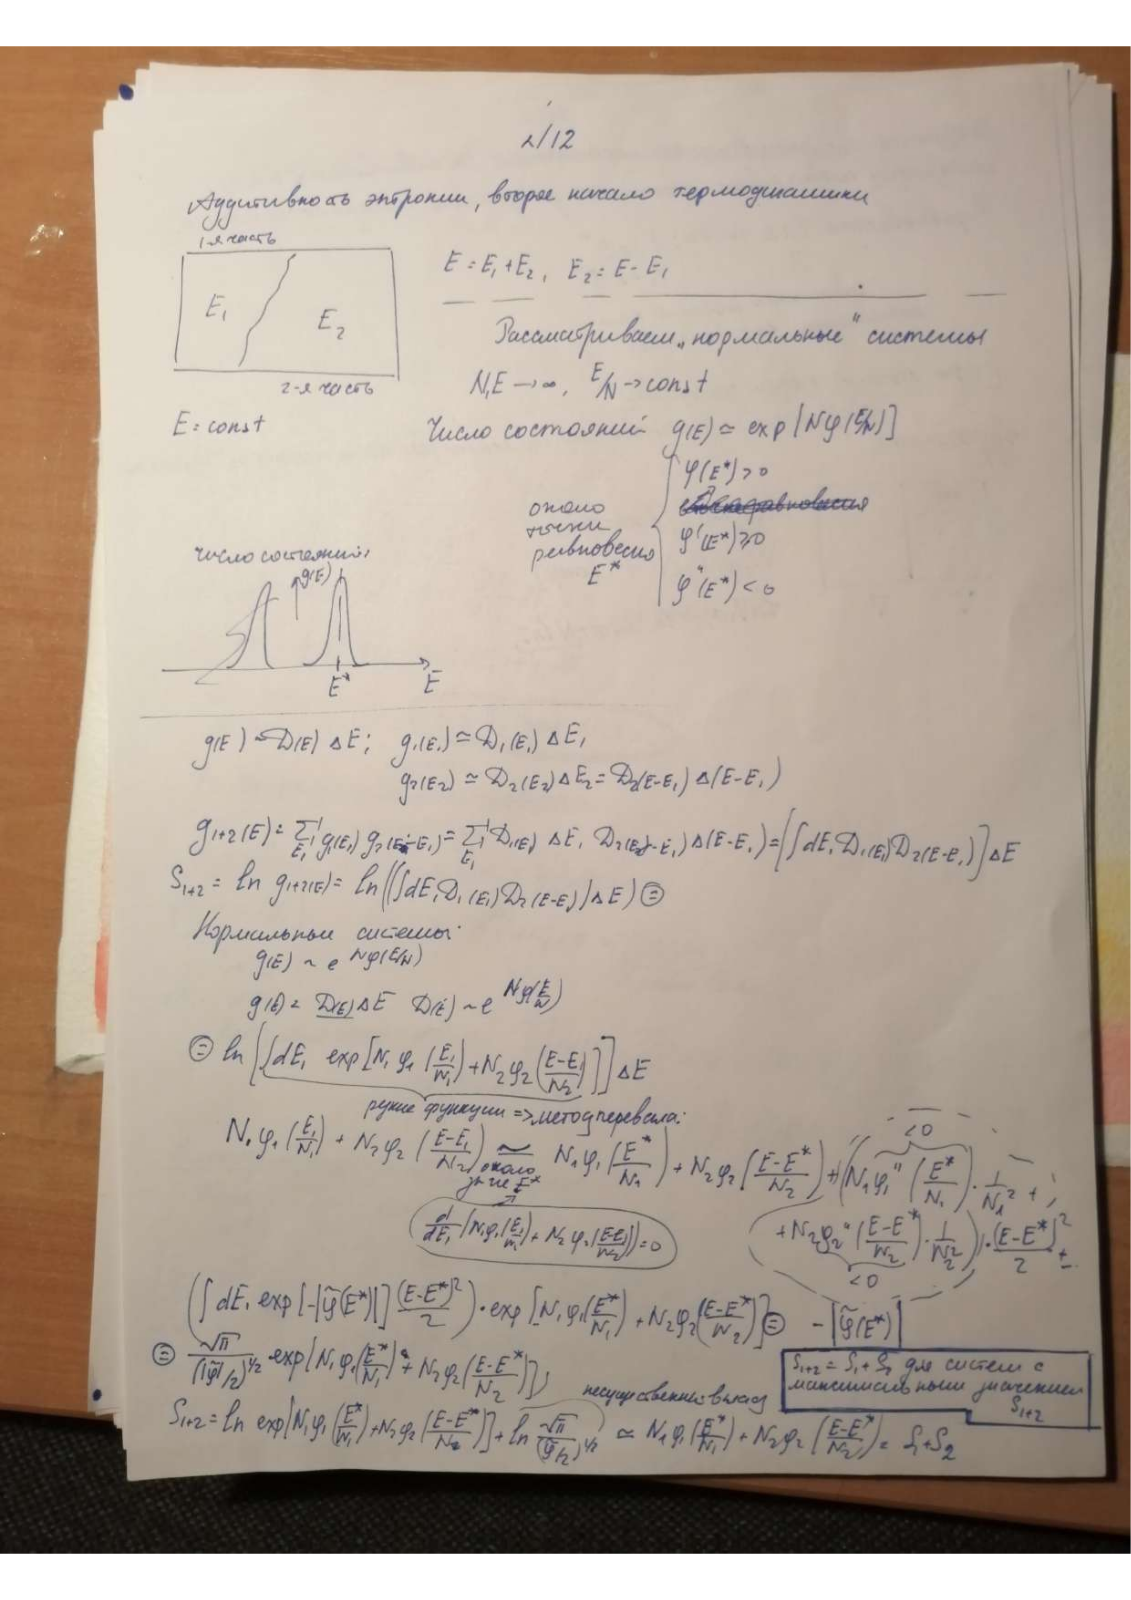 2/12
Аддитивность энтропии, второе начало термодинамики
1-я часть
E₁
E₂
2-я часть
E = const
E = E₁ + E₂, E₂ = E - E₁
Рассматриваем „нормальные" системы
N, E → ∞, E/N → const
Число состояний g(E) ≃ exp[Nφ(E/N)]
около точки равновесия E*
φ(E*) > 0
φ'(E*) ≥ 0
φ''(E*) < 0
число состояний:
g(E)
E*
E
g(E) ~ D(E) ΔE; g₁(E₁) ≃ D₁(E₁) ΔE₁
g₂(E₂) ≃ D₂(E₂) ΔE₂ = D₂(E-E₁) Δ(E-E₁)
g₁₊₂(E) = Σ_{E₁} g₁(E₁) g₂(E-E₁) = Σ_{E₁} D₁(E₁) ΔE₁ D₂(E-E₁) Δ(E-E₁) = [∫dE₁ D₁(E₁) D₂(E-E₁)] ΔE
S₁₊₂ = ln g₁₊₂(E) = ln((∫dE₁ D₁(E₁) D₂(E-E₁)) ΔE) ⊜
Нормальные системы:
g(E) ~ e^{Nφ(E/N)}
g(E) = D(E) ΔE D(E) ~ e^{Nφ(E/N)}
⊜ ln[∫dE₁ exp[N₁φ₁(E₁/N₁) + N₂φ₂((E-E₁)/N₂)]] ΔE
резкие функции => метод перевала:
N₁φ₁(E₁/N₁) + N₂φ₂((E-E₁)/N₂) ≃ N₁φ₁(E*/N₁) + N₂φ₂((E-E*)/N₂) + (N₁φ₁''(E*/N₁)·1/N₁² +
около
E*
<0
+ N₂φ₂''((E-E*)/N₂)·1/N₂²)·(E-E*)²/2 +
<0
d/dE₁ (N₁φ₁(E₁/N₁) + N₂φ₂((E-E₁)/N₂)) = 0
- |φ̃(E*)|
(∫dE₁ exp[-|φ̃(E*)|] (E-E*)²/2)·exp[N₁φ₁(E*/N₁) + N₂φ₂((E-E*)/N₂)] ⊜
⊜ √π/(|φ̃|/2)^{1/2}·exp[N₁φ₁(E*/N₁) + N₂φ₂((E-E*)/N₂)];
S₁₊₂ = S₁ + S₂ для систем с
максимальными значением
S₁₊₂
несущественный вклад
S₁₊₂ = ln exp[N₁φ₁(E*/N₁) + N₂φ₂((E-E*)/N₂)] + ln √π/(φ̃/2)^{1/2} ≃ N₁φ₁(E*/N₁) + N₂φ₂((E-E*)/N₂) = S₁+S₂